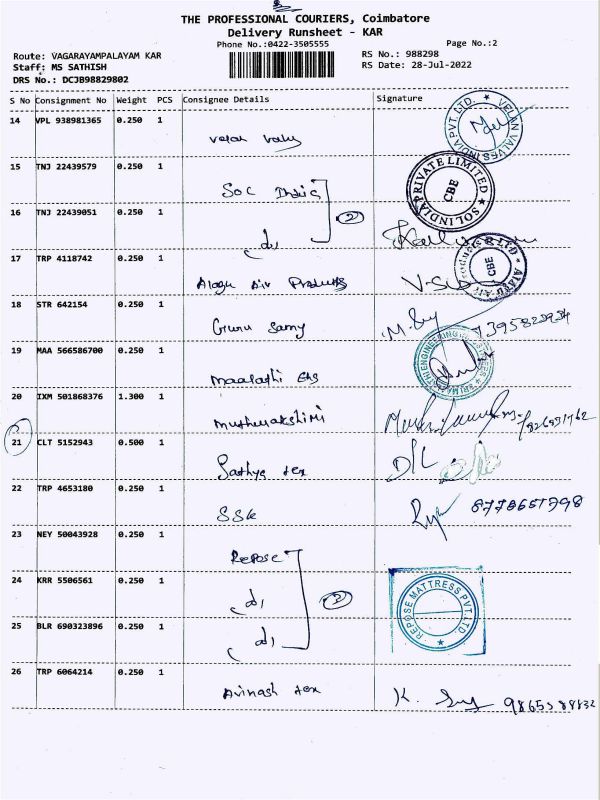 THE PROFESSIONAL COURIERS, Coimbatore
Delivery Runsheet - KAR
Phone No.:0422-3505555
Page No.:2
Route: VAGARAYAMPALAYAM KAR
RS No.: 988298
Staff: MS SATHISH
RS Date: 28-Jul-2022
DRS No.: DCJB98829802
S No Consignment No Weight PCS Consignee Details Signature
14 VPL 938981365 0.250 1
Velan Valv
VELAN VALVES INDIA PVT. LTD.
15 TNJ 22439579 0.250 1
SOL India
SOL INDIA PRIVATE LIMITED
CBE
16 TNJ 22439051 0.250 1
d1
2
17 TRP 4118742 0.250 1
Alagu Air Products
CBE
18 STR 642154 0.250 1
Guru Samy
19 MAA 566586700 0.250 1
Maalathi Eng
20 IXM 501868376 1.300 1
21 CLT 5152943 0.500 1
Sathya tex
D/L
22 TRP 4653180 0.250 1
SSK
23 NEY 50043928 0.250 1
Repose
24 KRR 5506561 0.250 1
d1
REPOSE MATTRESS PVT. LTD
25 BLR 690323896 0.250 1
d1
26 TRP 6064214 0.250 1
Avinash tex
K.